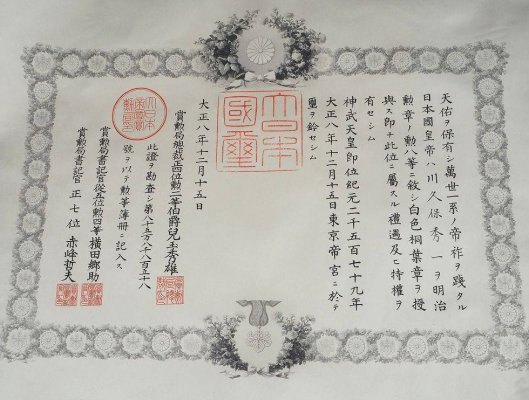 天佑ヲ保有シ萬世一系ノ帝祚ヲ踐タル
日本國皇帝ハ川久保秀一ヲ明治
勲章ノ勲八等ニ敘シ白色桐葉章ヲ授
與ス即チ此位ニ屬スル禮遇及ヒ特權ヲ
有セシム
神武天皇即位紀元二千五百七十九年
大正八年十二月十五日東京帝宮ニ於テ
璽ヲ鈐セシム
大日本
國璽
大正八年十二月十五日
賞勲局総裁正四位勲二等伯爵兒玉秀雄
此證ヲ勘査シ第八十五万八千八百五十八
號ヲ以テ勲等簿冊ニ記入ス
賞勲局書記官從五位勲四等横田郷助
賞勲局書記官正七位 赤峰哲夫